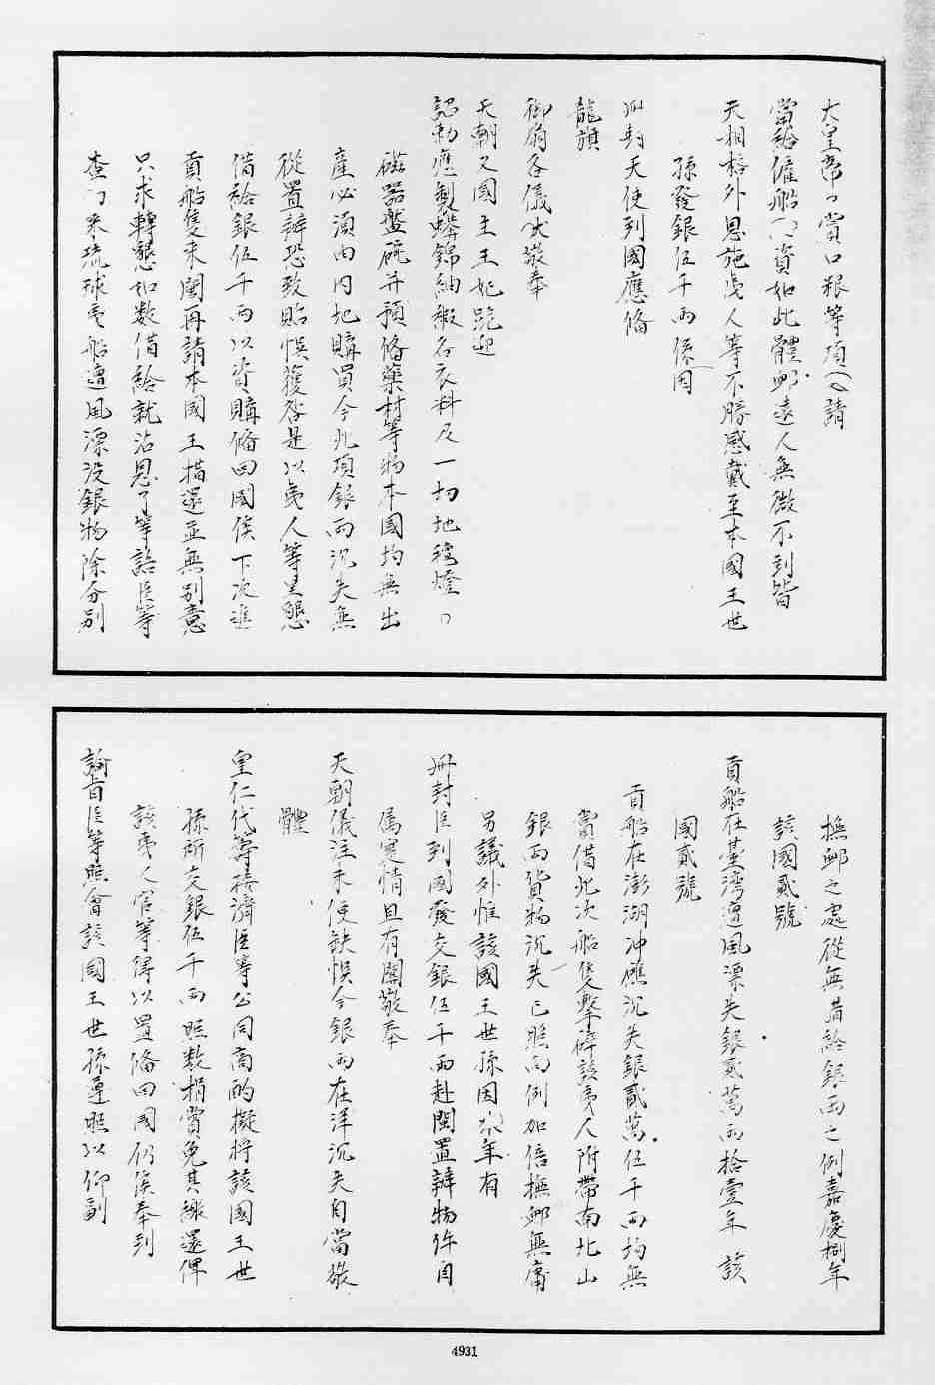 大皇帝日賞口粮等項心請
當給僱船心資如此體卹遠人無微不到皆
天相格外恩施夷人等不勝感戴至本國王世
孫發銀伍千両係因
冊封天使到國應備
龍旗
御前各儀仗敬奉
天朝又國主王妃跪迎
認勅應製蟒錦紬緞各衣料及一切地毯燈
磁器盤碗并預備藥材等物本國均無出
產必須由内地購買今此項銀両沉失無
從置辦恐致貽悞獲咎是以夷人等呈懇
借給銀伍千両以資購備回國俟下次進
貢船隻来閩再請本國王措還並無别意
只求轉懇如数借給就沾恩了等語臣等
查向来琉球夷船遭風漂没銀物除分别
撫卹之處從無着給銀両之例嘉慶捌年
該國貳號
貢船在臺灣遭風漂失銀貳萬両拾壹年該
國貳號
貢船在澎湖冲礁沉失銀貳萬伍千両均無
賞借此次船隻擊碎該夷人附帶南北山
銀両貨物沉失已照向例加倍撫卹無庸
另議外惟該國王世孫因來年有
冊封臣到國發交銀伍千両赴閩置辦物件自
属寔情且有關敬奉
天朝儀注未便缺悞今銀両在洋沉失自當敬
體
皇仁代籌接濟臣等公同商酌擬将該國王世
孫所交銀伍千両照数捐賞免其繳還俾
該夷人官等得以置備回國仍俟奉到
諭旨臣等照會該國王世孫遵照以仰副
4931